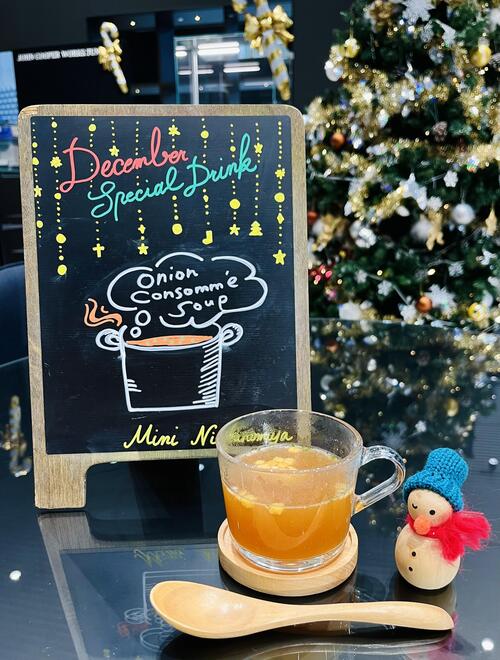 December
Special Drink
Onion
Consommé
Soup
Mini